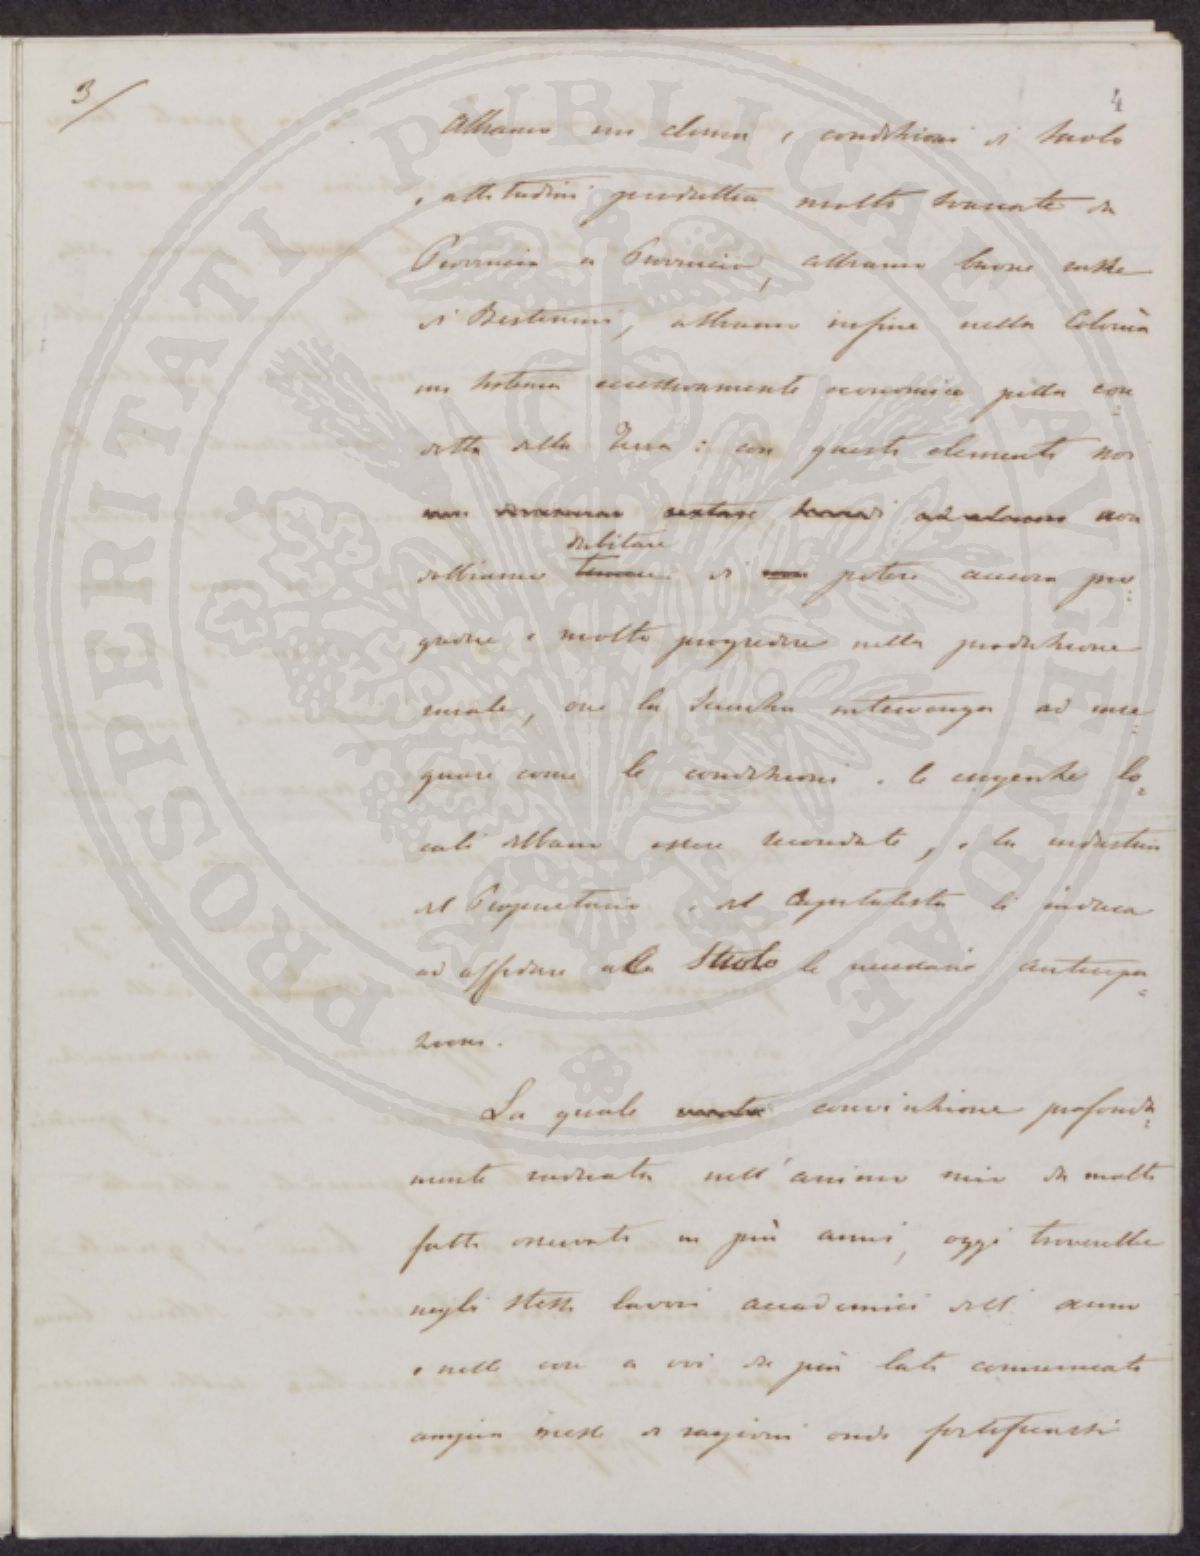 3/
4
Abbiamo un clima, e condizioni di suolo
e attitudini produttive molto svariate da
Provincia a Provincia, abbiamo buone razze
di Bestiami, abbiamo infine nella Colonìa
un sistema eccessivamente economico pella con=
dotta della Terra: con questi elementi noi
non dovremmo restare secondi ad alcuno non
dubitare
dobbiamo temere di non potere ancora pro=
gredire e molto progredire nella produzione
rurale, ove la Scienza intervenga ad inse=
gnare come le condizioni e le esigenze lo=
cali debbano essere secondate, e la industria
del Proprietario e del Capitalista li induca
ad affidare alla Suolo le necessarie anticipa=
zioni.
La quale convinzione profonda=
mente radicata nell'animo mio da molti
fatti osservati in più anni, oggi troverebbe
negli stessi lavori accademici dell'anno
e nelle cose a voi da più lati comunicate
ampia messe di ragioni onde fortificarsi
PROSPERITATI PUBLICAE AUGENDAE